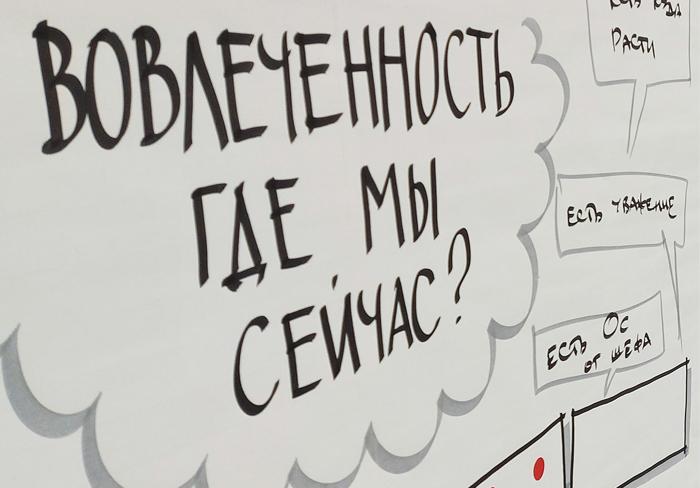 ВОВЛЕЧЕННОСТЬ
ГДЕ МЫ
СЕЙЧАС?
ЕСТЬ КУДА
РАСТИ
ЕСТЬ УВАЖЕНИЕ
ЕСТЬ ОС
ОТ ШЕФА